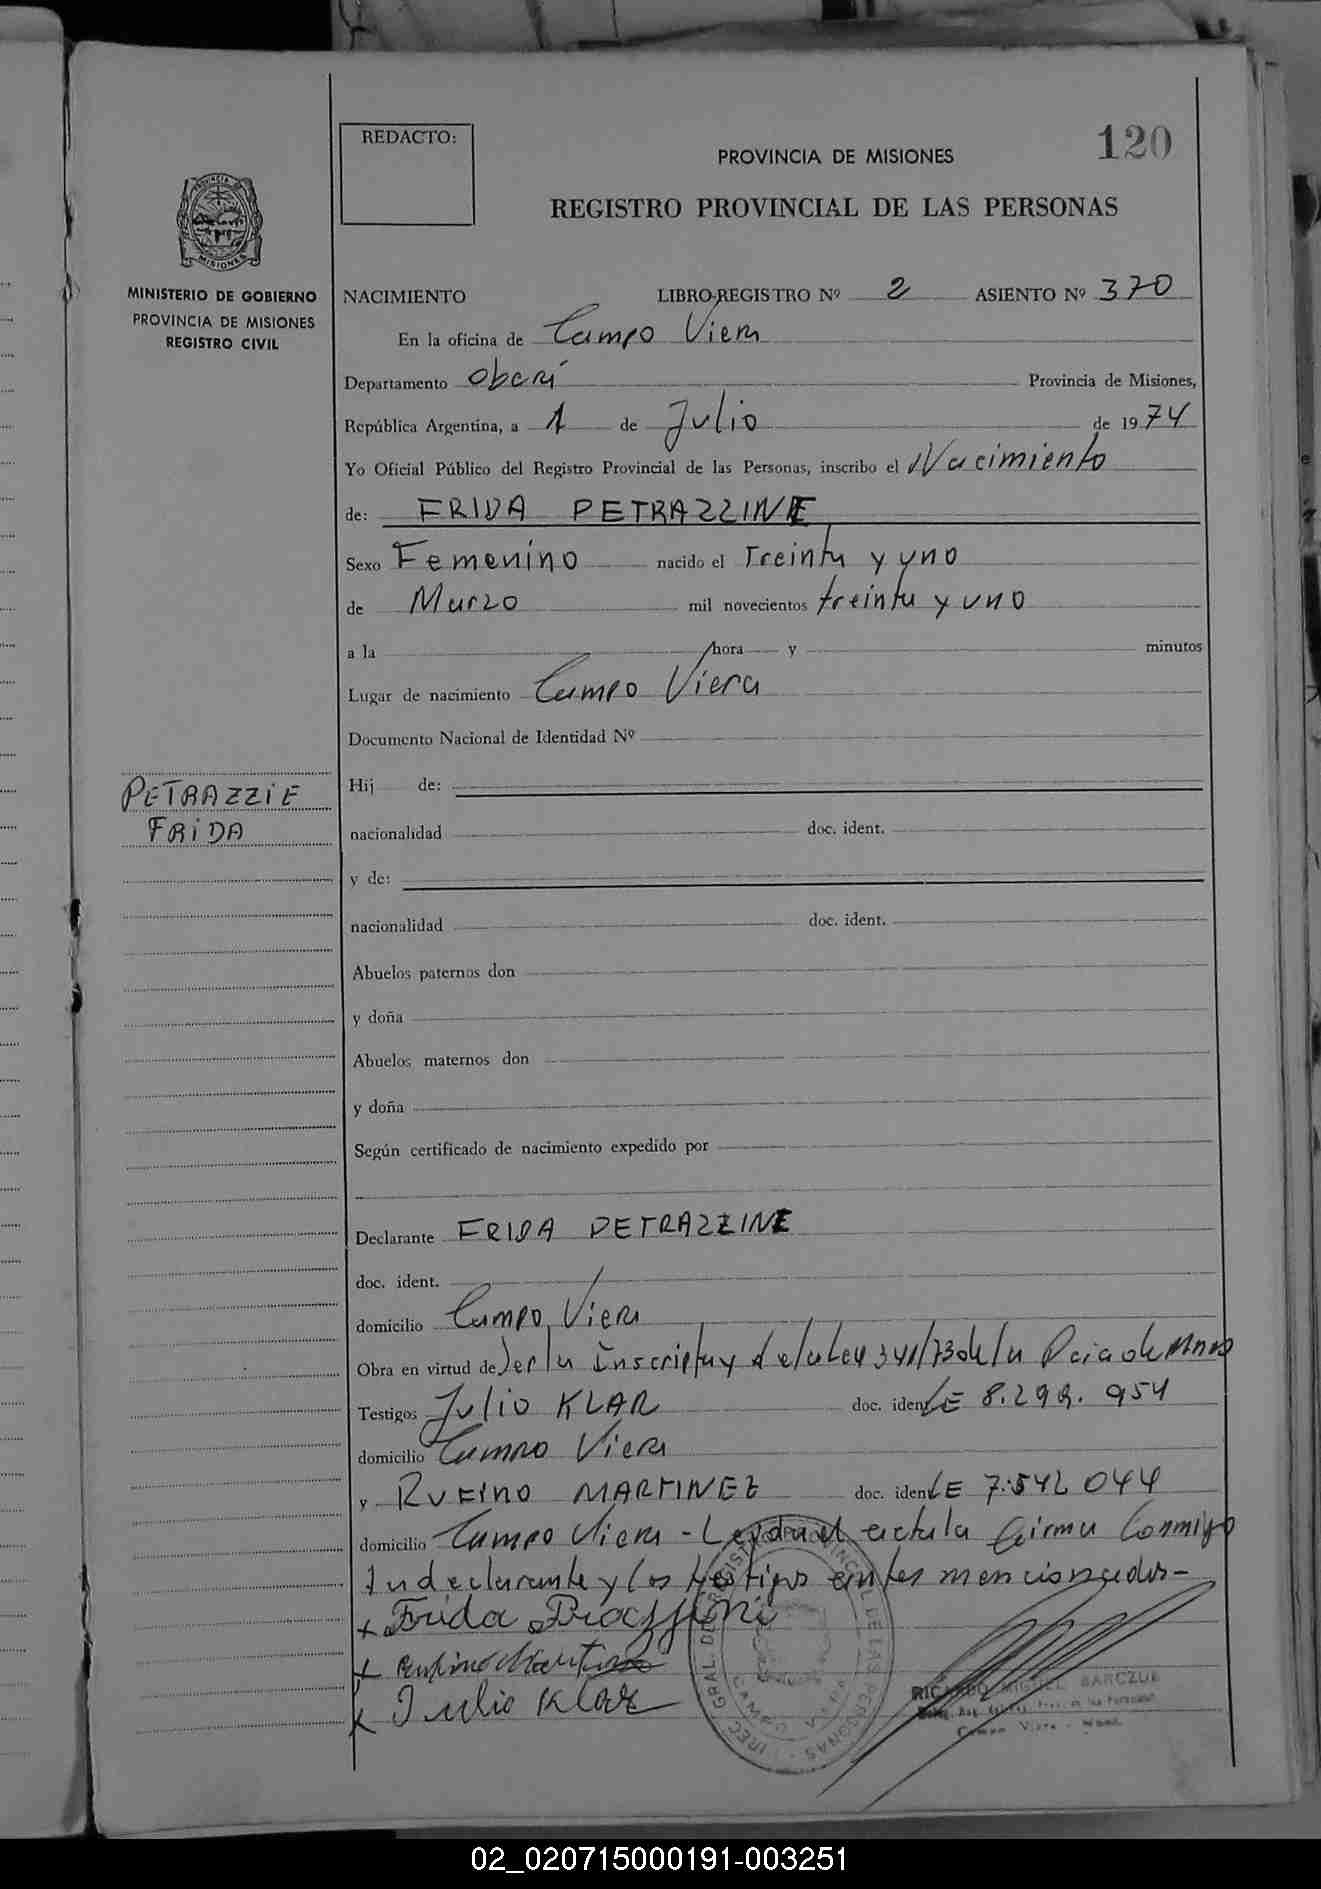 REDACTO:
120
PROVINCIA DE MISIONES
REGISTRO PROVINCIAL DE LAS PERSONAS
PROVINCIA
MISIONES
MINISTERIO DE GOBIERNO
PROVINCIA DE MISIONES
REGISTRO CIVIL
NACIMIENTO LIBRO-REGISTRO Nº 2 ASIENTO Nº 370
En la oficina de Campo Viera
Departamento Oberá Provincia de Misiones,
República Argentina, a 1 de Julio de 1974
Yo Oficial Público del Registro Provincial de las Personas, inscribo el Nacimiento
de: FRIDA PETRAZZINE
Sexo Femenino nacido el Treinta y uno
de Marzo mil novecientos treinta y uno
a la hora y minutos
Lugar de nacimiento Campo Viera
Documento Nacional de Identidad Nº
PETRAZZIE
FRIDA
Hij de:
nacionalidad doc. ident.
y de:
nacionalidad doc. ident.
Abuelos paternos don
y doña
Abuelos maternos don
y doña
Según certificado de nacimiento expedido por
Declarante FRIDA PETRAZZINE
doc. ident.
domicilio Campo Viera
Obra en virtud de ser la Inscripta y de la Ley 341/73 de la Pcia de Mnes
Testigos Julio KLAR doc. ident LE 8.299.954
domicilio Campo Viera
y RUFINO MARTINEZ doc. ident LE 7.542 044
domicilio Campo Viera - Leyda el acta la firma Conmigo
la declarante y los testigos antes mencionados-
+ Frida
+ Rufino
+ Julio Klar
RICARDO MIGUEL BARCZUK
Campo Viera
02_020715000191-003251